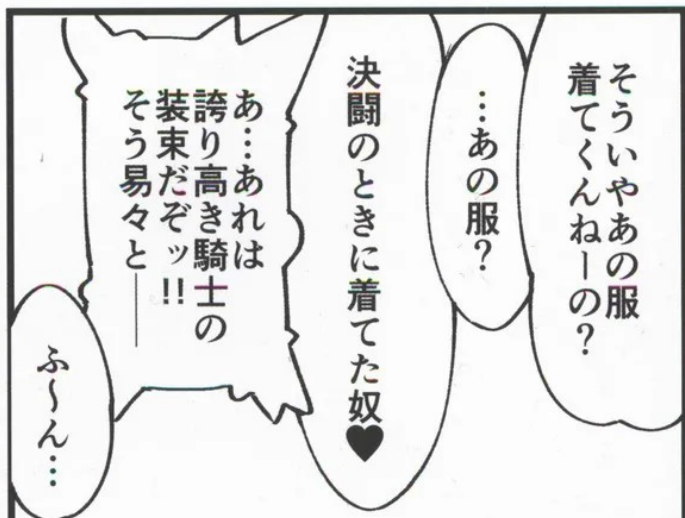 そういやあの服
着てくんねーの?
…あの服?
決闘のときに着てた奴♥
あ…あれは
誇り高き騎士の
装束だぞッ!!
そう易々と――
ふ～ん…